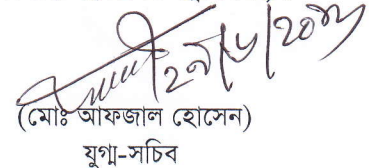 ২৯/৮/২০১৮
(মোঃ আফজাল হোসেন)
যুগ্ম-সচিব